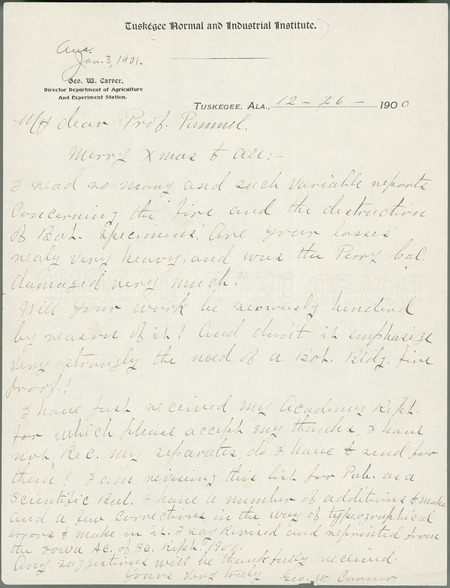 Tuskegee Normal and Industrial Institute.
Ans.
Jan. 3, 1901.
Geo. W. Carver,
Director Department of Agriculture
And Experiment Station.
Tuskegee, Ala., 12-26-1900
My dear Prof. Pammel.
Merry Xmas to all:-
I read so many and such variable reports
concerning the fire and the destruction
of Bot. Specimens. Are your losses
realy very heavy, and was the Parry col.
damaged very much?
Will your work be seriously hindered
by reason of it? And dosn't it emphasize
very strongly the need of a Bot. Bldg. fire
proof!
I have just received my Academy Rept.
for which please accept my thanks, I have
not Rec. my separates, do I have to send for
them? I am revising this list for Pub. as a
Scientific Bul. I have a number of additions to make
and a few corrections in the way of typographical
errors to make in it. I say Revised and reprinted from
the Iowa Ac. of Sc. Rept.
Any suggestions will be thankfully received.
Yours very truly Geo. W. Carver